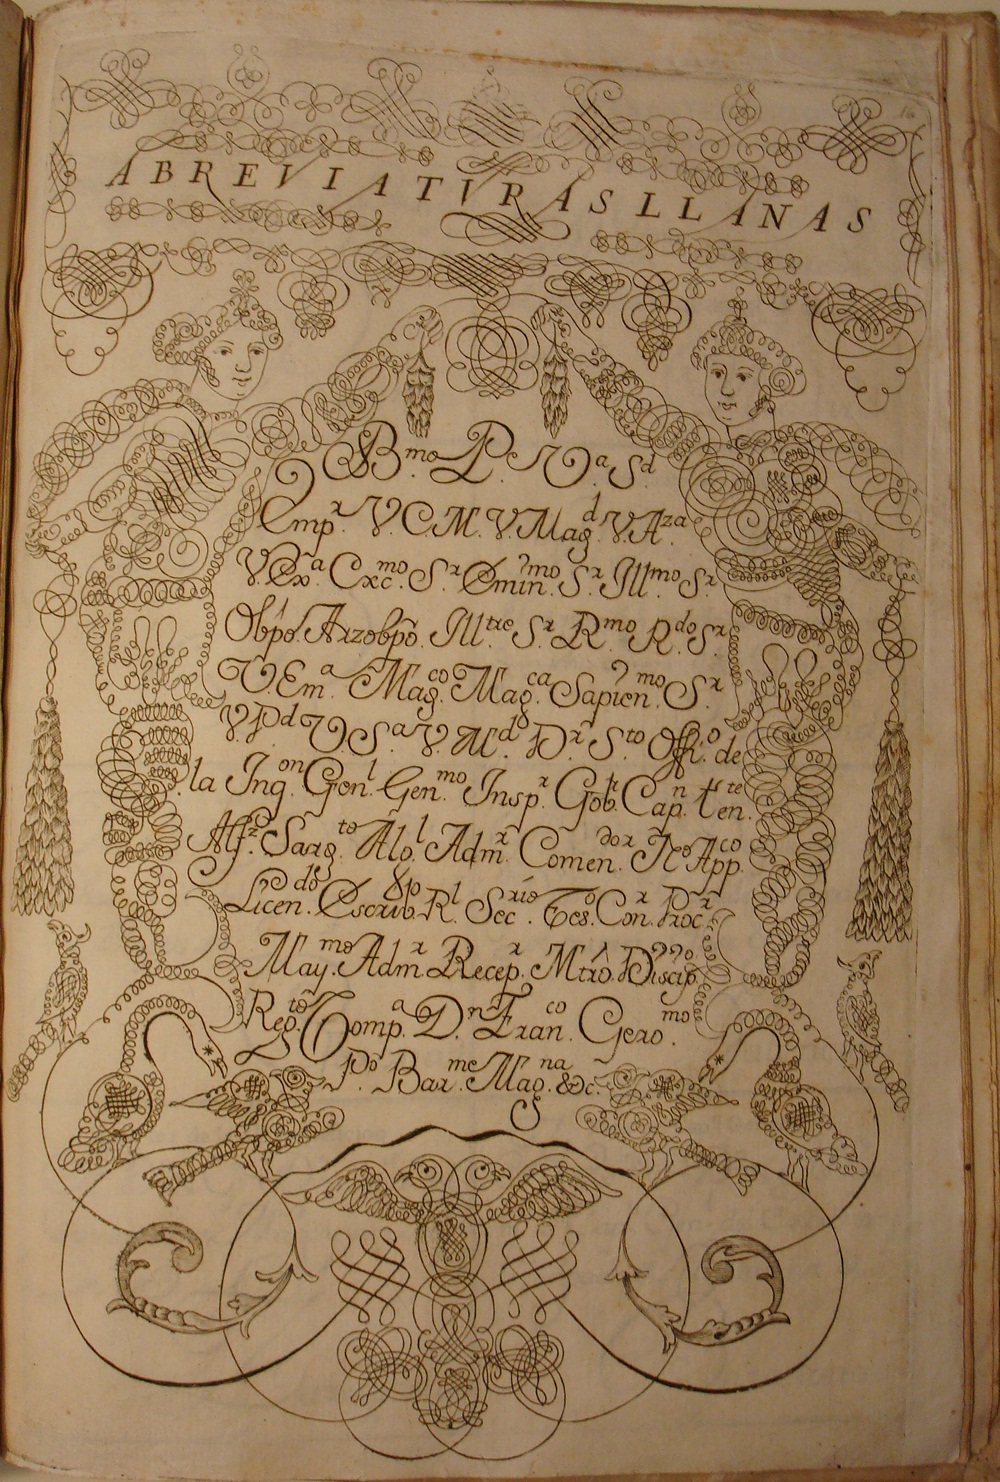 ABREVIATVRAS LLANAS
B.mo P. V.a S.d
Emp.r V.C.M. V. Mag.d V. A.za
V. Ex.a Exc.mo S.r Emin.mo S.r Ill.mo S.r
Obpo. Arzobpo. Ill.tre S.r R.mo R.do S.r
V. Em.a Mag.co Mag.ca Sapien.mo S.r
V. P.d V. S.a V. M.d D.r S.to Offi.o de
la Inq.on Gen.l Gen.mo Insp.r Gob.r Cap.n ten.te
Alf.z Sarg.to Alo.l Adm.r Comen.dor N.o App.co
Licen.do Escrib. R.l Sec.rio Tes.o Con.r Proc.r
May.mo Adm.r Recep.r Mtro. Discip.
Reg.to Comp.a D.n Fran.co Gero.mo
P.o Bar.me Mag.na &c.